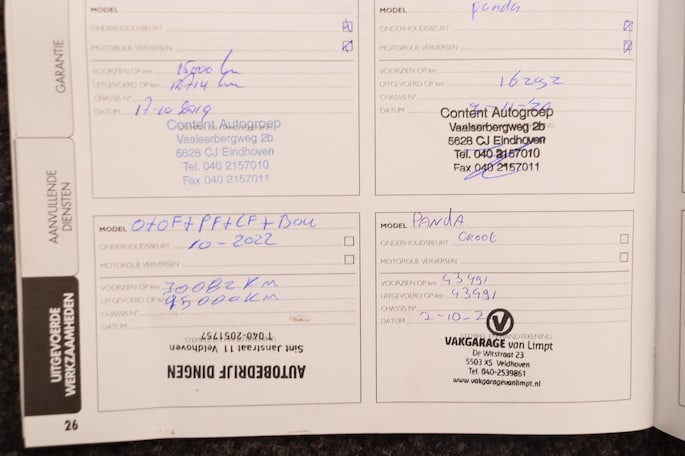 GARANTIE
AANVULLENDE
DIENSTEN
UITGEVOERDE
WERKZAAMHEDEN
26
MODEL
ONDERHOUDSBEURT
MOTOROLIE VERVERSEN
VOORZIEN OP km 15000 km
UITGEVOERD OP km 12714 km
CHASSIS N°
DATUM 17-10 2019
Content Autogroep
Vaalserbergweg 2b
5628 CJ Eindhoven
Tel. 040 2157010
Fax 040 2157011
MODEL panda
ONDERHOUDSBEURT
MOTOROLIE VERVERSEN
VOORZIEN OP km
UITGEVOERD OP km 16292
CHASSIS N°
DATUM
Content Autogroep
Vaalserbergweg 2b
5628 CJ Eindhoven
Tel. 040 2157010
Fax 040 2157011
MODEL O+OF+PF+LF+BOU
ONDERHOUDSBEURT 10-2022
MOTOROLIE VERVERSEN
VOORZIEN OP km 30082 KM
UITGEVOERD OP km 45000 KM
CHASSIS N°
DATUM
AUTOBEDRIJF DINGEN
Sint Janstraat 11 Veldhoven
T 040-2051757
MODEL PANDA
ONDERHOUDSBEURT GROOT
MOTOROLIE VERVERSEN
VOORZIEN OP km 43491
UITGEVOERD OP km 43491
CHASSIS N°
DATUM 2-10-2
VAKGARAGE van Limpt
De Witstraat 23
5503 XS Veldhoven
Tel. 040-2539861
www.vakgaragevanlimpt.nl